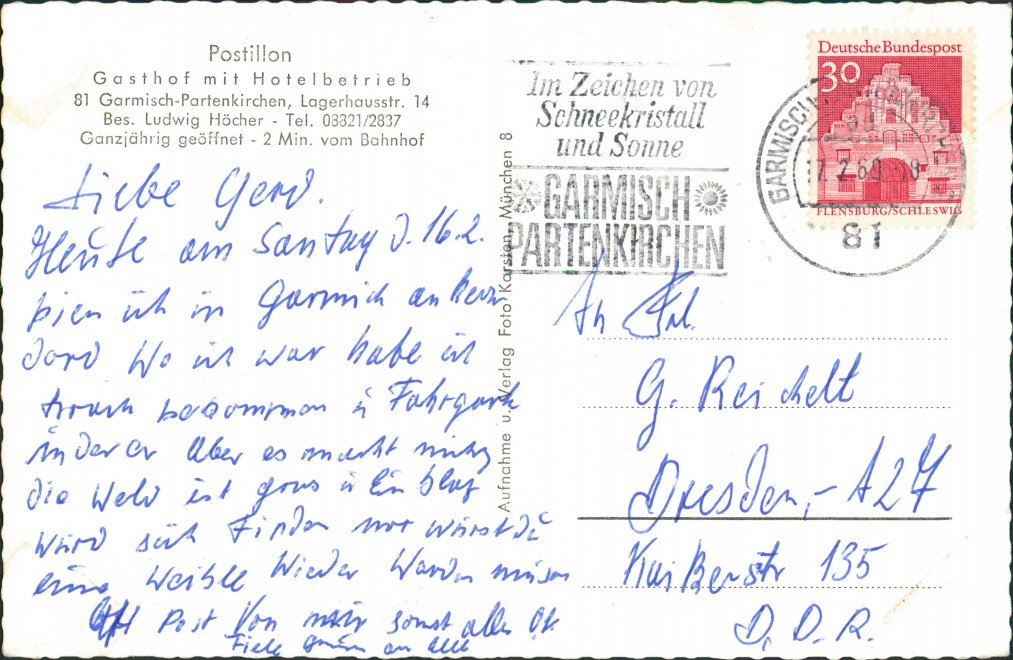 Postillon
Gasthof mit Hotelbetrieb
81 Garmisch-Partenkirchen, Lagerhausstr. 14
Bes. Ludwig Höcher - Tel. 08821/2837
Ganzjährig geöffnet - 2 Min. vom Bahnhof
Liebe Gerd.
Heute am Santag d. 16.2.
bien ich in Garmich an
dord Wo ich war habe ich
bekommen u Fahrgart
in der er Aber es macht
die Weld ist gros u Ein Plaz
Würd sich Finden nor würst du
eine Weihle Wieder Warden müsen
auf Post Von mir sonst alles Ok
Fiele an alle
Aufnahme u. Verlag Foto Karsten, München 8
Im Zeichen von
Schneekristall
und Sonne
GARMISCH
PARTENKIRCHEN
Deutsche Bundespost
30
FLENSBURG/SCHLESWIG
GARMISCH-PARTENKIRCHEN
17.2.69-18
81
An Frl.
G. Reichelt
Dresden,- A27
Kaißerstr 135
D.D.R.